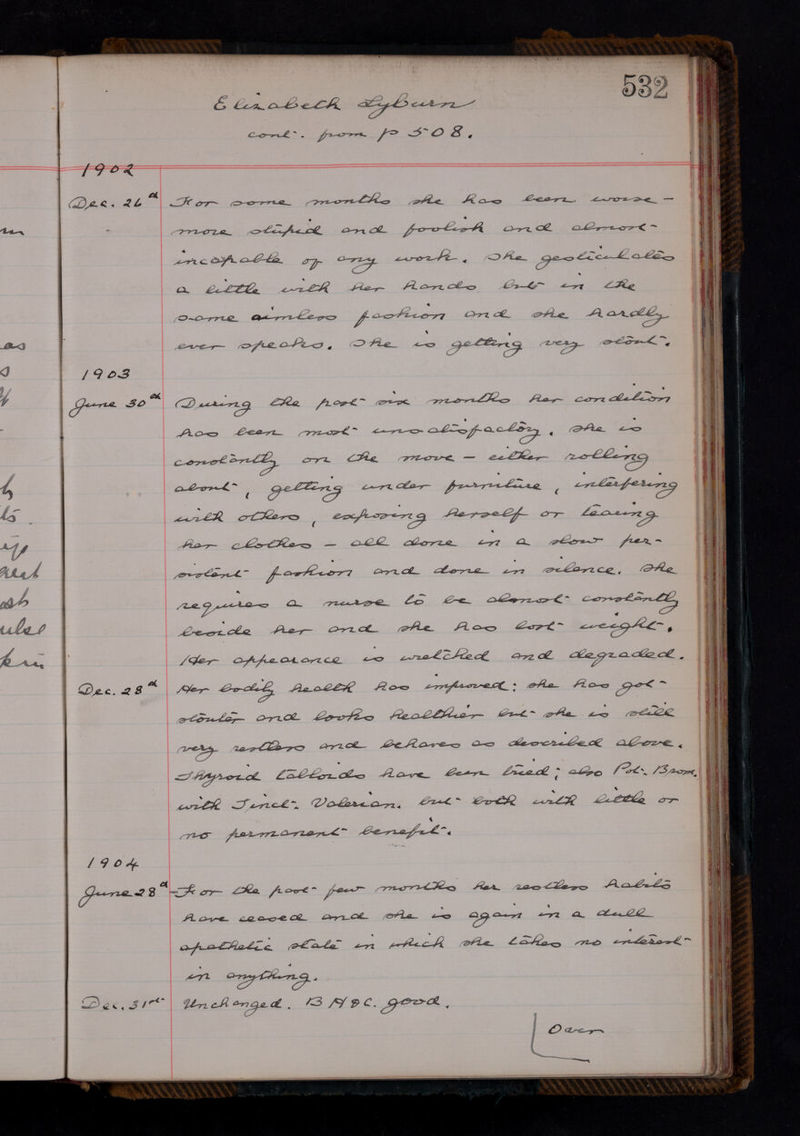 532
Elizabeth Lyburn
cont. from p 508.
1902
Dec. 26th For some months she has been worse -
more stupid and foolish and almost
incapable of any work. She gesticulates
a little with her hands but in the
same aimless fashion and she hardly
ever speaks. She is getting very stout.
1903
June 30th During the past six months her condition
has been most unsatisfactory. She is
constantly on the move - either rolling
about, getting under furniture, interfering
with others, exposing herself or tearing
her clothes - all done in a slow per-
sistent fashion and done in silence. She
requires a nurse to be almost constantly
beside her and she has lost weight.
Her appearance is wretched and degraded.
Dec. 28th Her bodily health has improved; she has got
stouter and looks healthier but she is still
very restless and behaves as described above.
Thyroid Tabloids have been tried; also Pot. Brom.
with Tinct. Valerian. but both with little or
no permanent benefit.
1904
June 28th - For the past few months her restless habits
have ceased and she is again in a dull
apathetic state in which she takes no interest
in anything.
Dec. 31st Unchanged. B H & C. good.
Over